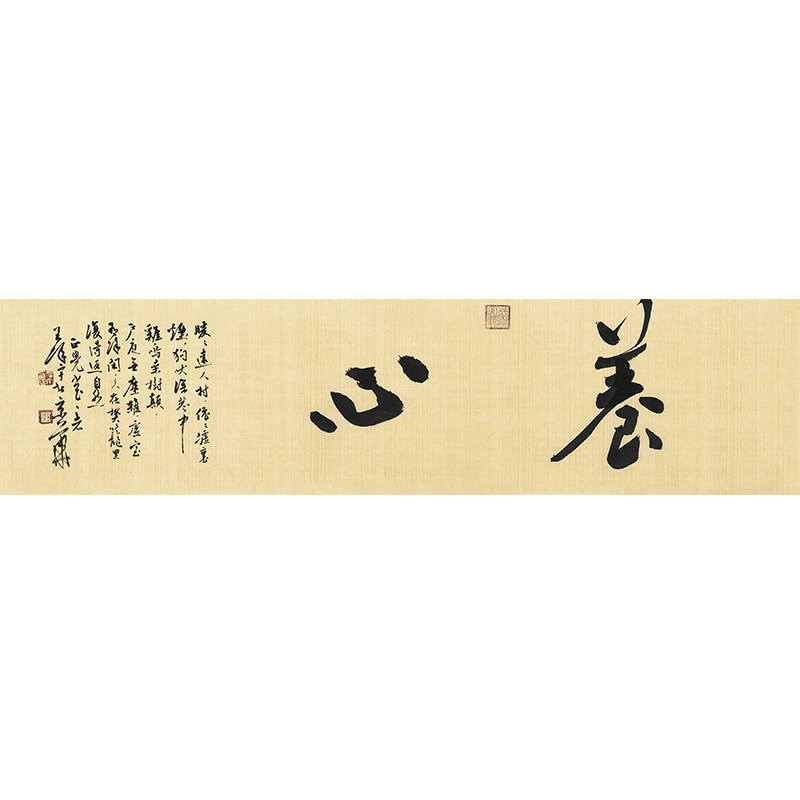 養
心
曖々遠人村依々墟裏
煙狗吠深巷中
雞鳴桑樹顛
户庭無塵雜虛室
有餘閒久在樊籠里
復得返自然